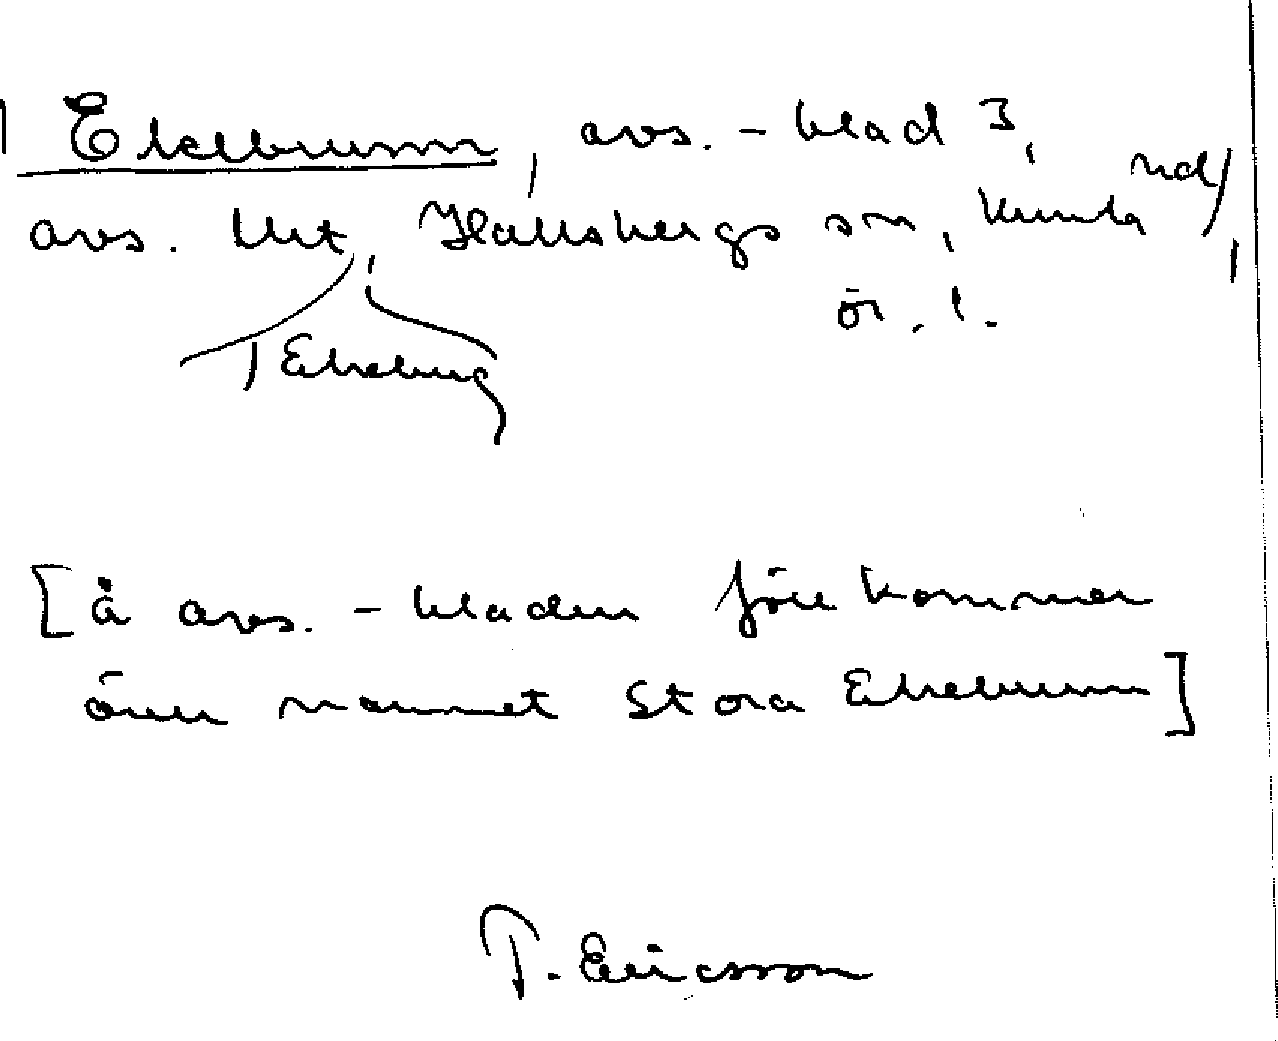 Ekebrunn, avs.-blad 3,
avs. fr. Hallsbergs sn, Kumla hd,
ör. l.
Ekeberg
[å avs.-bladen förekommer
även namnet Stora Ekebrunn]
T. Ericsson